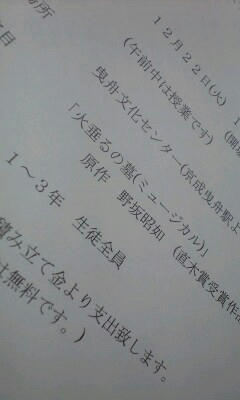 場所
12月22日(火) 1
(午前中は授業です) (開
曳舟文化センター(京成曳舟駅よ
「火垂るの墓(ミュージカル)」
原作 野坂昭如 (直木賞受賞作
1～3年 生徒全員
積み立て金より支出致します。
無料です。)